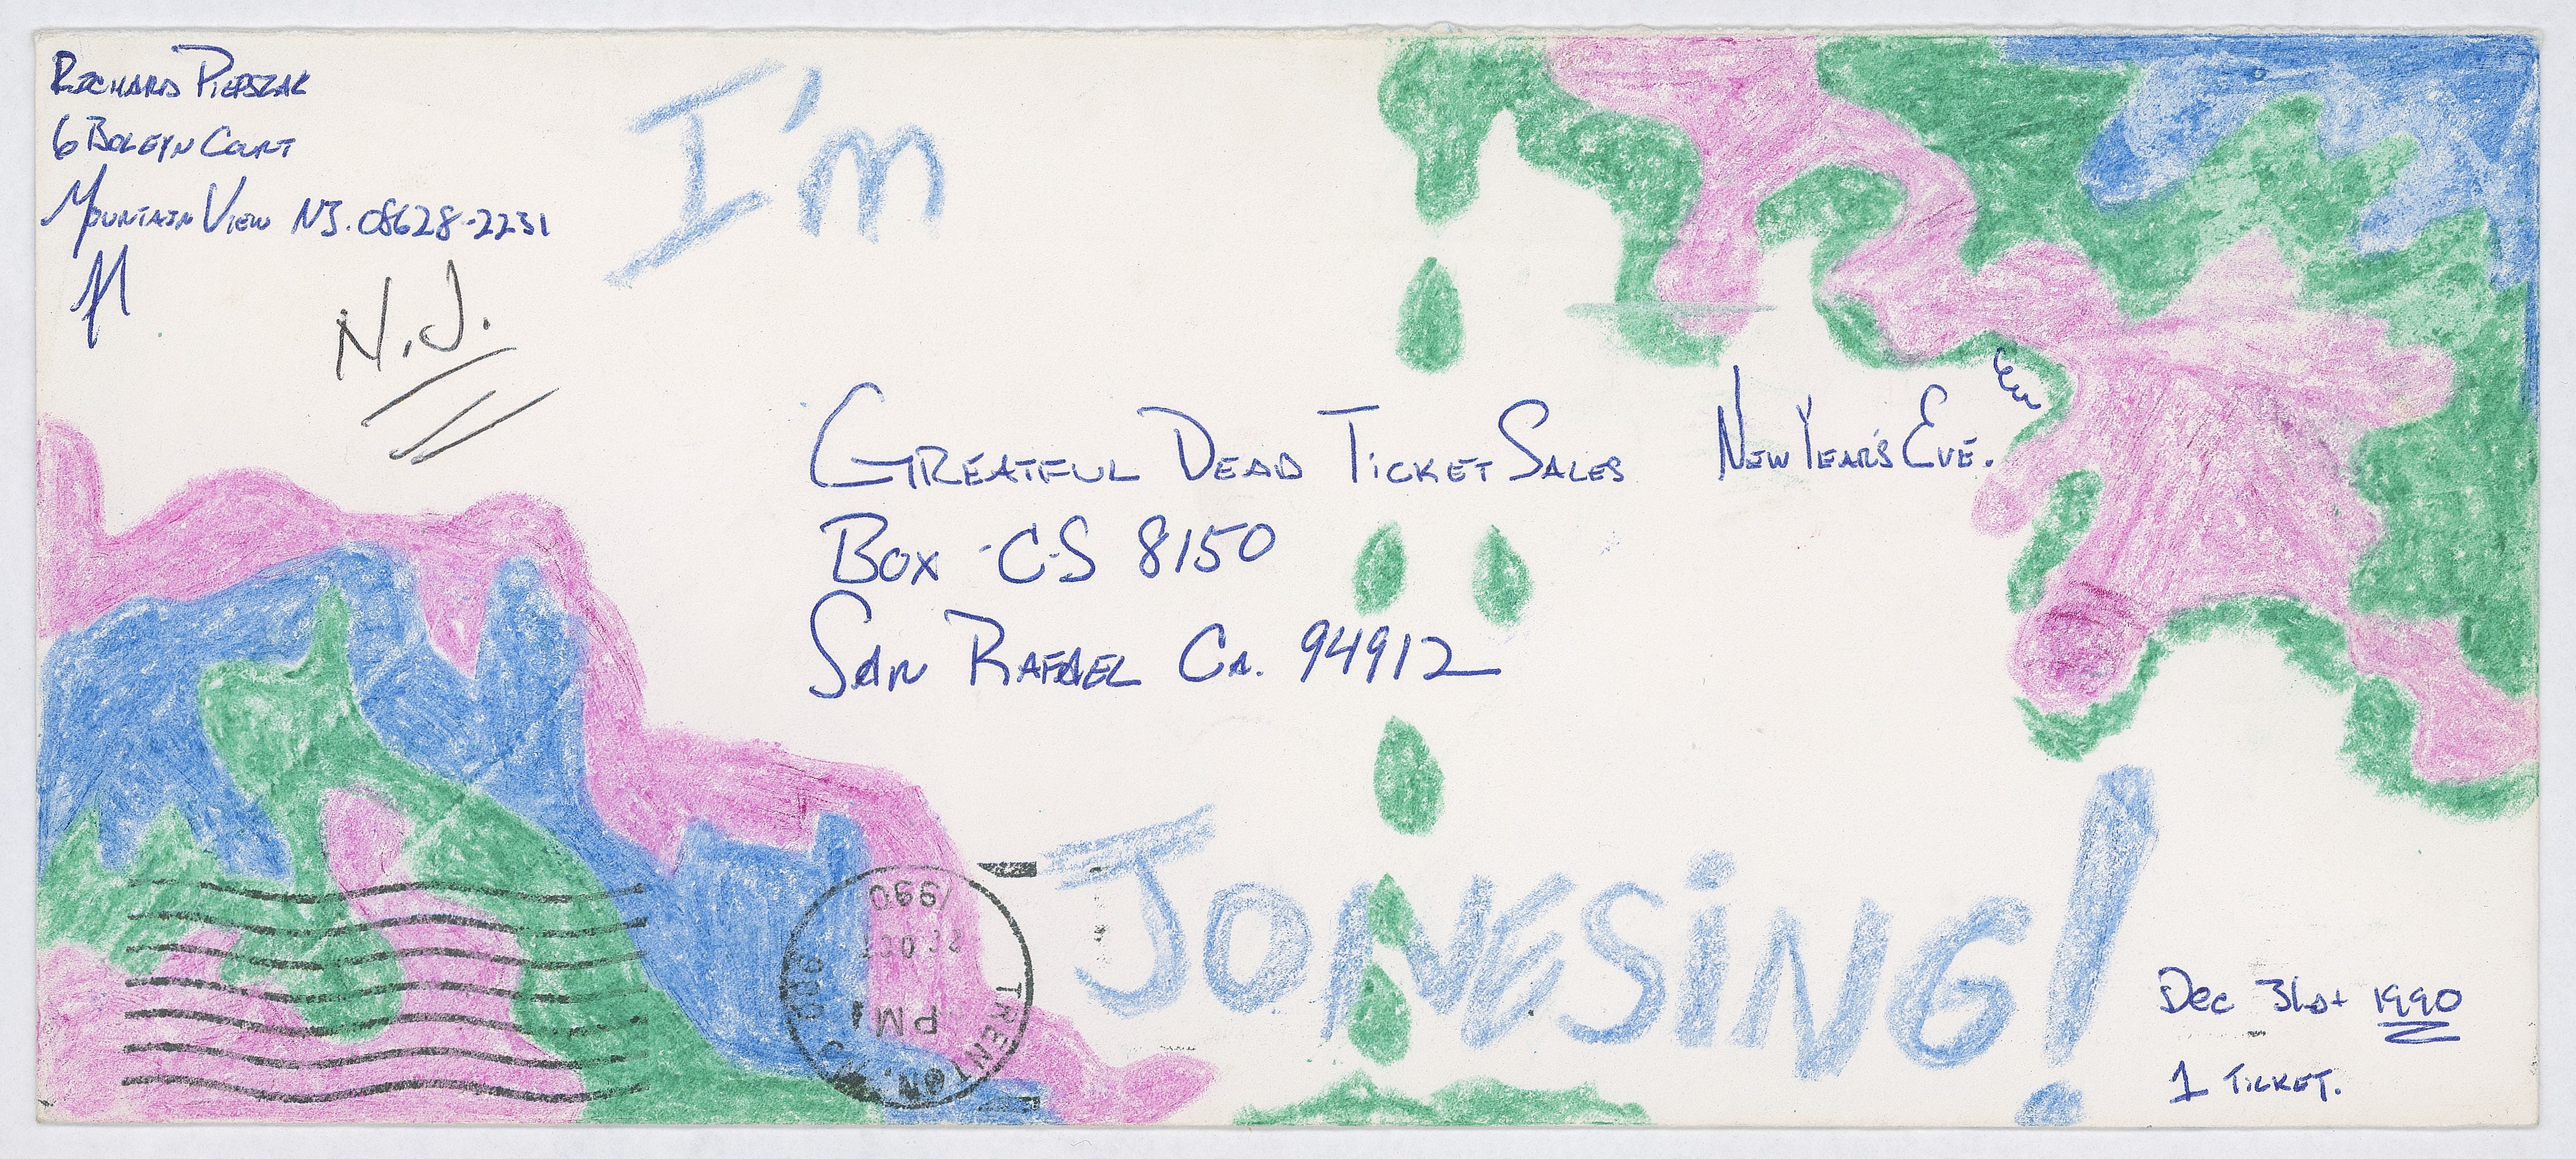 Richard Piepszak
6 Boleyn Court
Mountain View NJ. 08628-2231
N.J.
I'm
Greatful Dead Ticket Sales New Year's Eve.
Box C-S 8150
San Rafael Ca. 94912
JONESiNG!
1990
OCT
PM
TRENTON, NJ
Dec 31st 1990
1 Ticket.